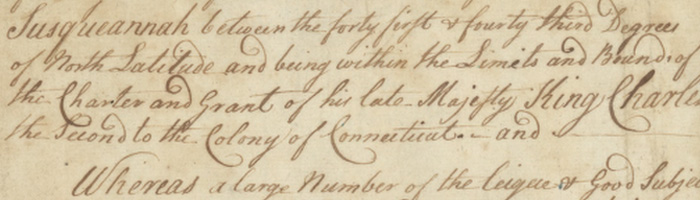 Susqueannah between the forty first & fourty third Degrees
of North Latitude and being within the Limits and Bounds of
the Charter and Grant of his late Majesty King Charles
the Second to the Colony of Connecticut. - and
Whereas a large Number of the leigee & Good Subje